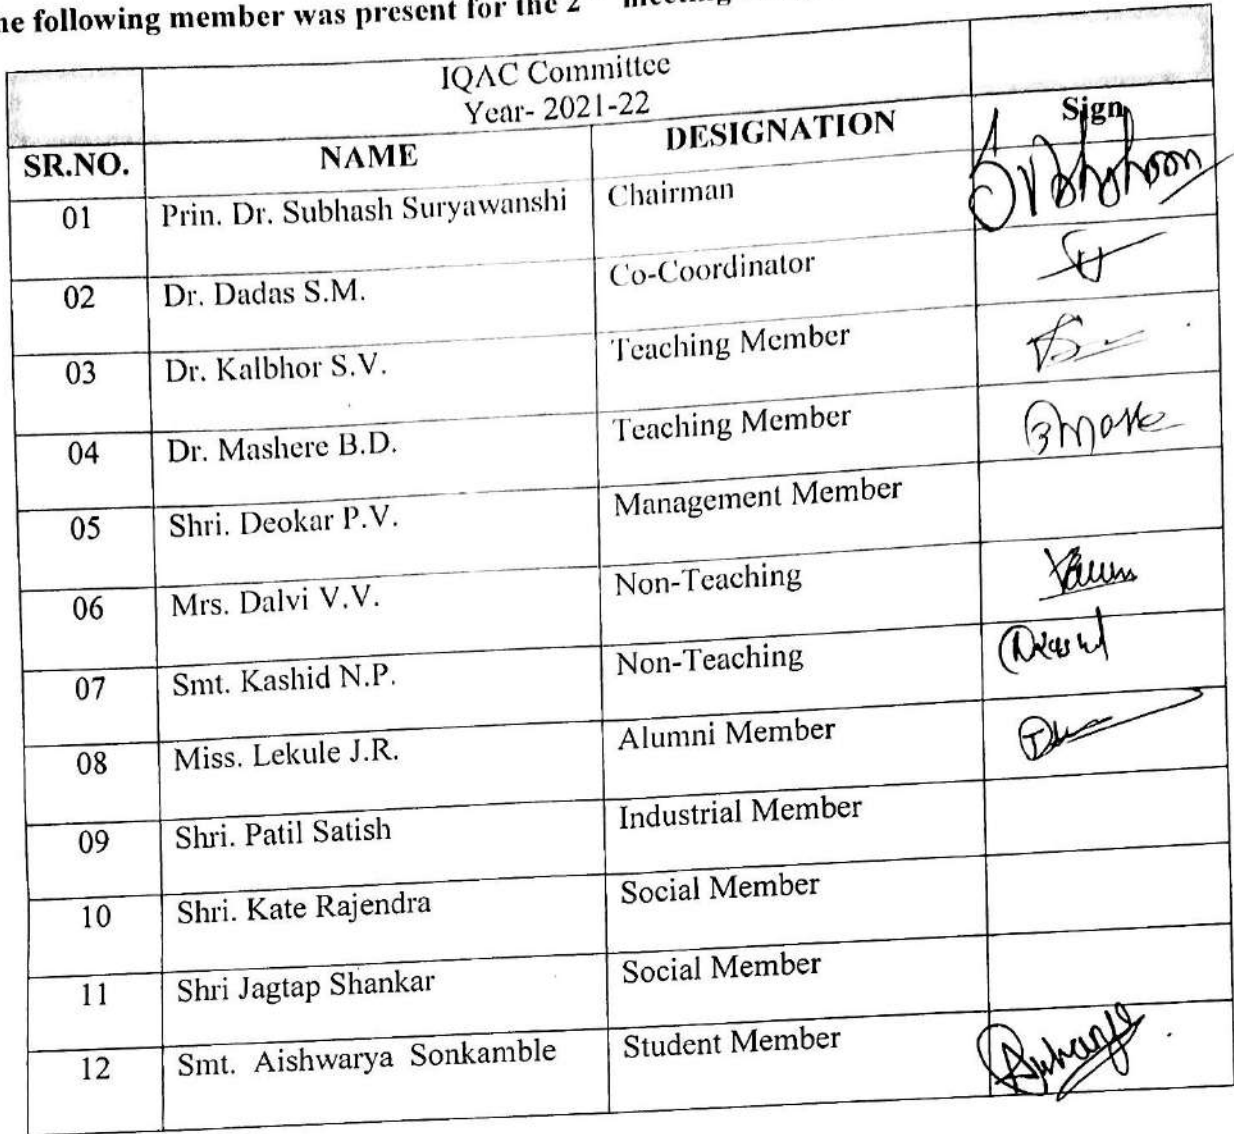 he following member was present for the 2
IQAC Committee
Year- 2021-22
SR.NO. NAME DESIGNATION Sign
01 Prin. Dr. Subhash Suryawanshi Chairman
02 Dr. Dadas S.M. Co-Coordinator
03 Dr. Kalbhor S.V. Teaching Member
04 Dr. Mashere B.D. Teaching Member
05 Shri. Deokar P.V. Management Member
06 Mrs. Dalvi V.V. Non-Teaching
07 Smt. Kashid N.P. Non-Teaching
08 Miss. Lekule J.R. Alumni Member
09 Shri. Patil Satish Industrial Member
10 Shri. Kate Rajendra Social Member
11 Shri Jagtap Shankar Social Member
12 Smt. Aishwarya Sonkamble Student Member